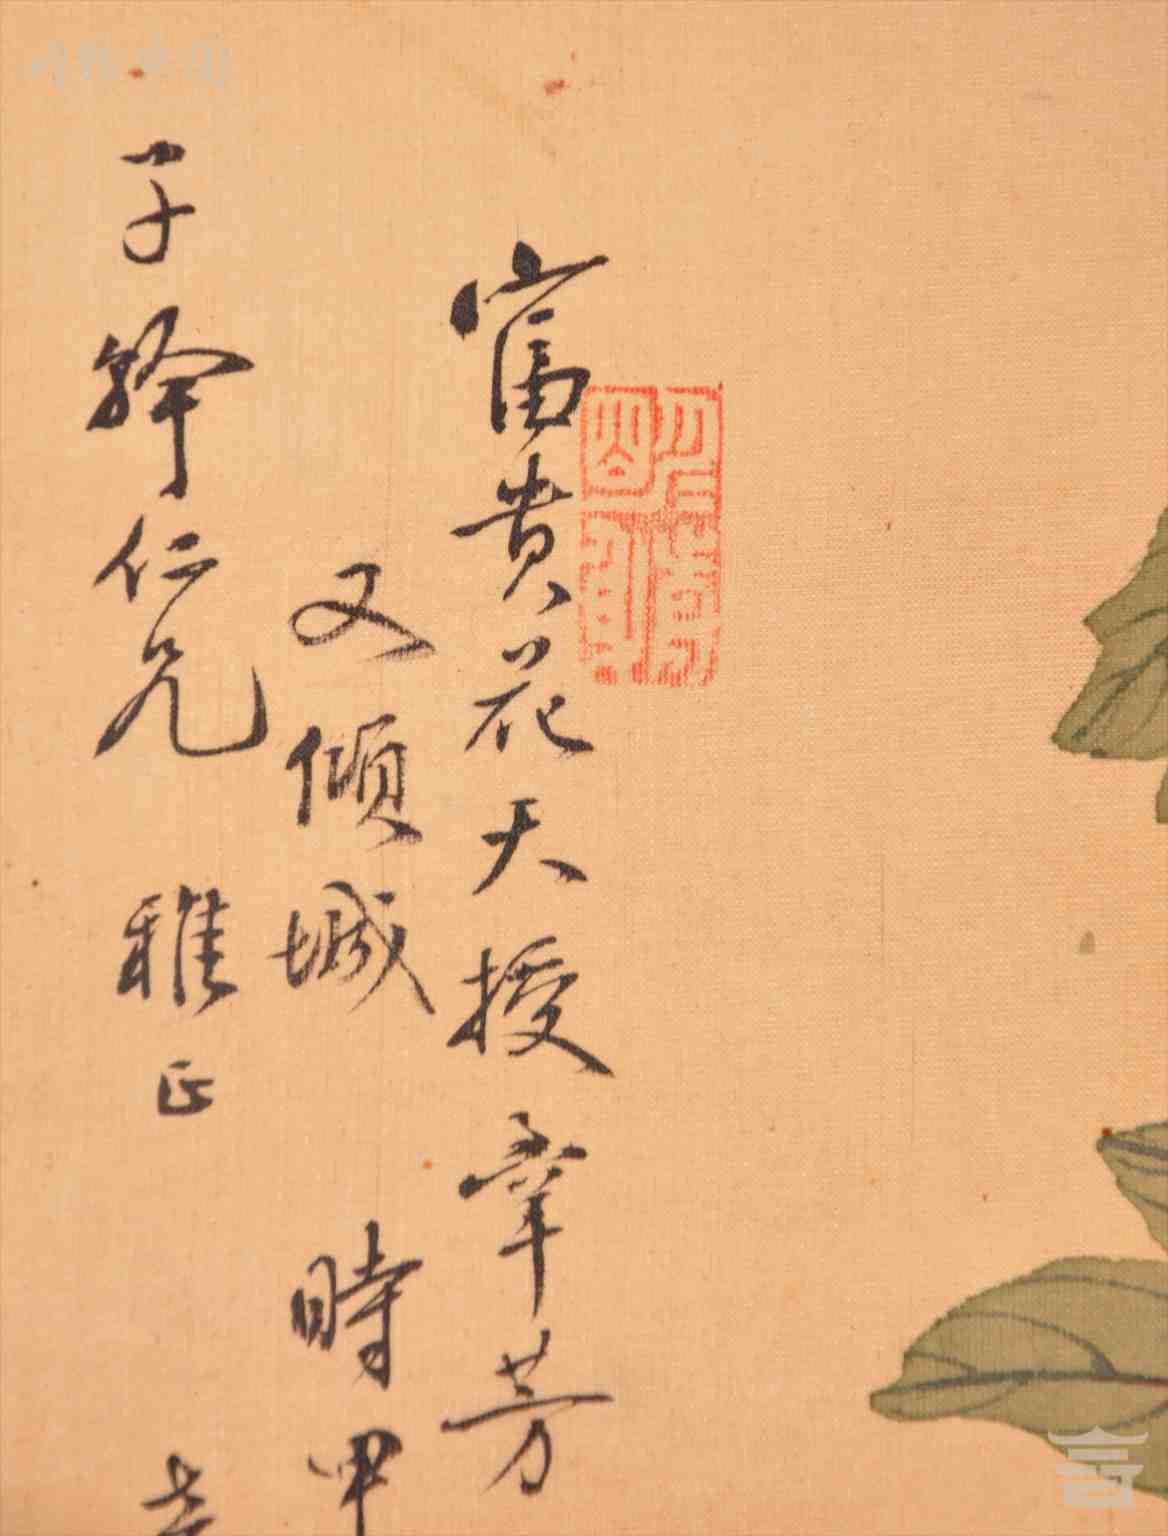 富貴花天授宰芳
又傾城 時甲
子幹仁兄 雅正